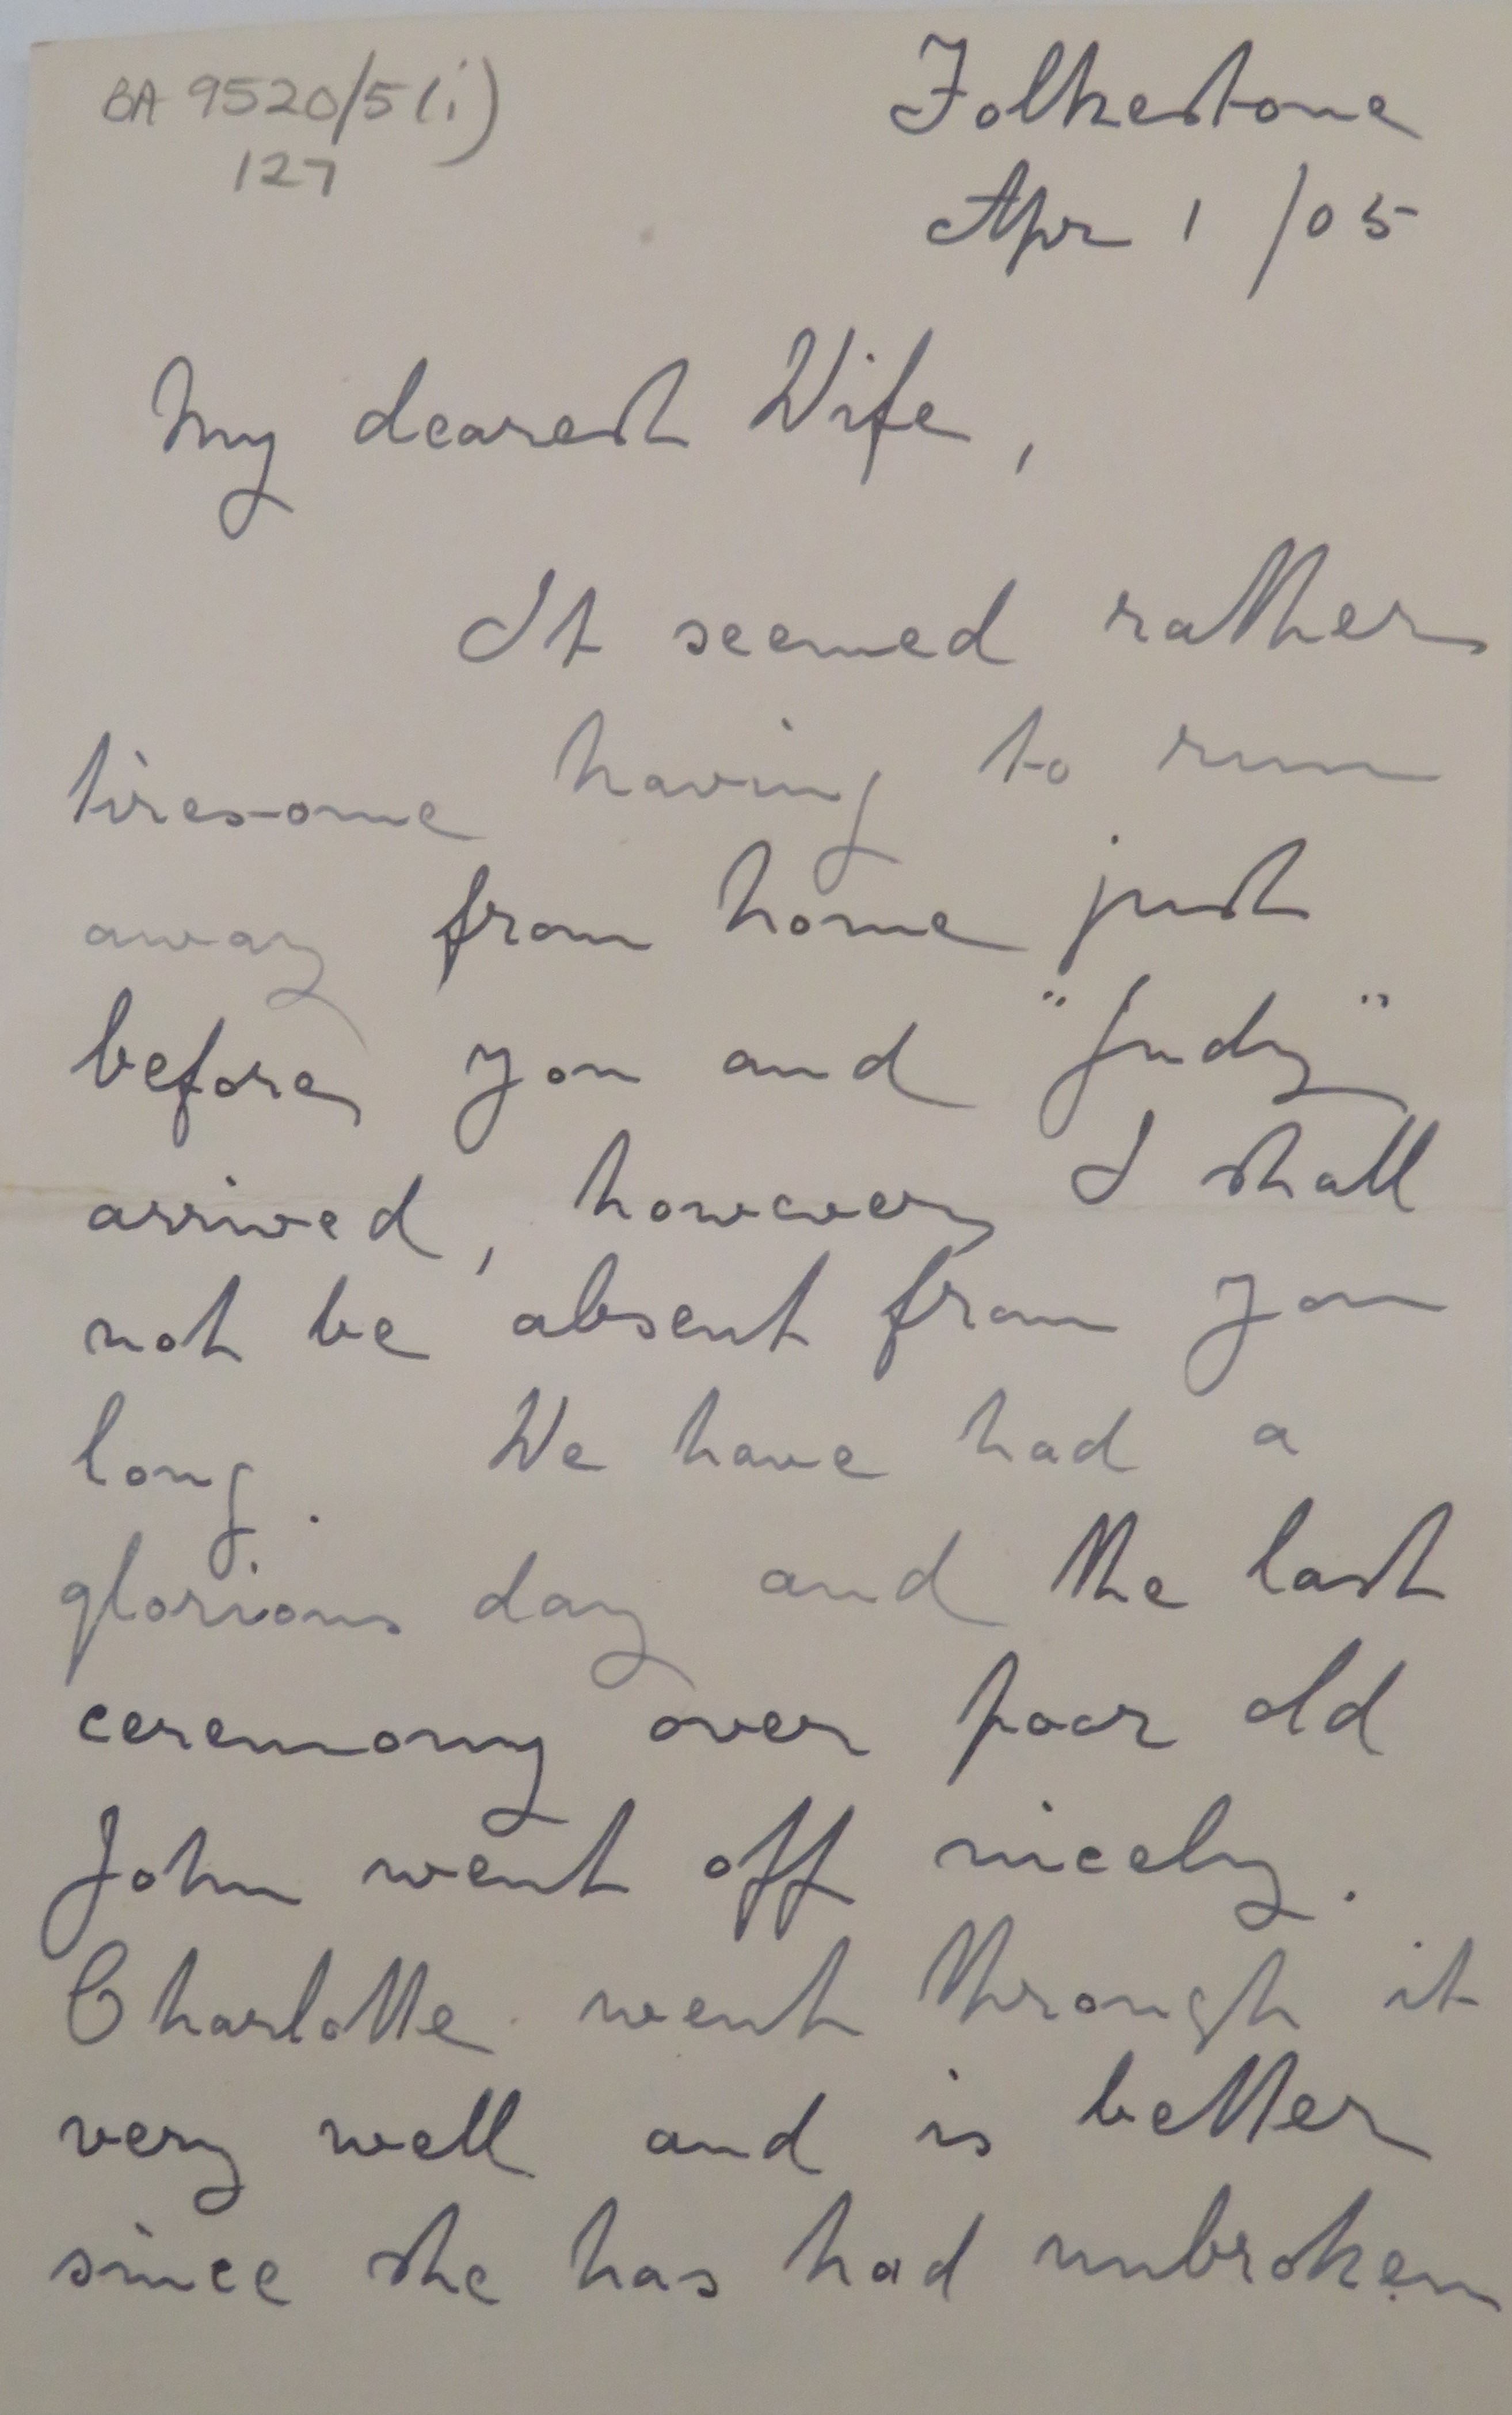 BA 9520/5(i)
127
Folkestone
Apr 1 /05
My dearest Wife,
It seemed rather
tiresome having to run
away from home just
before you and "Judy"
arrived, however I shall
not be absent from you
long. We have had a
glorious day and the last
ceremony over poor old
John went off nicely.
Charlotte went through it
very well and is better
since she has had unbroken